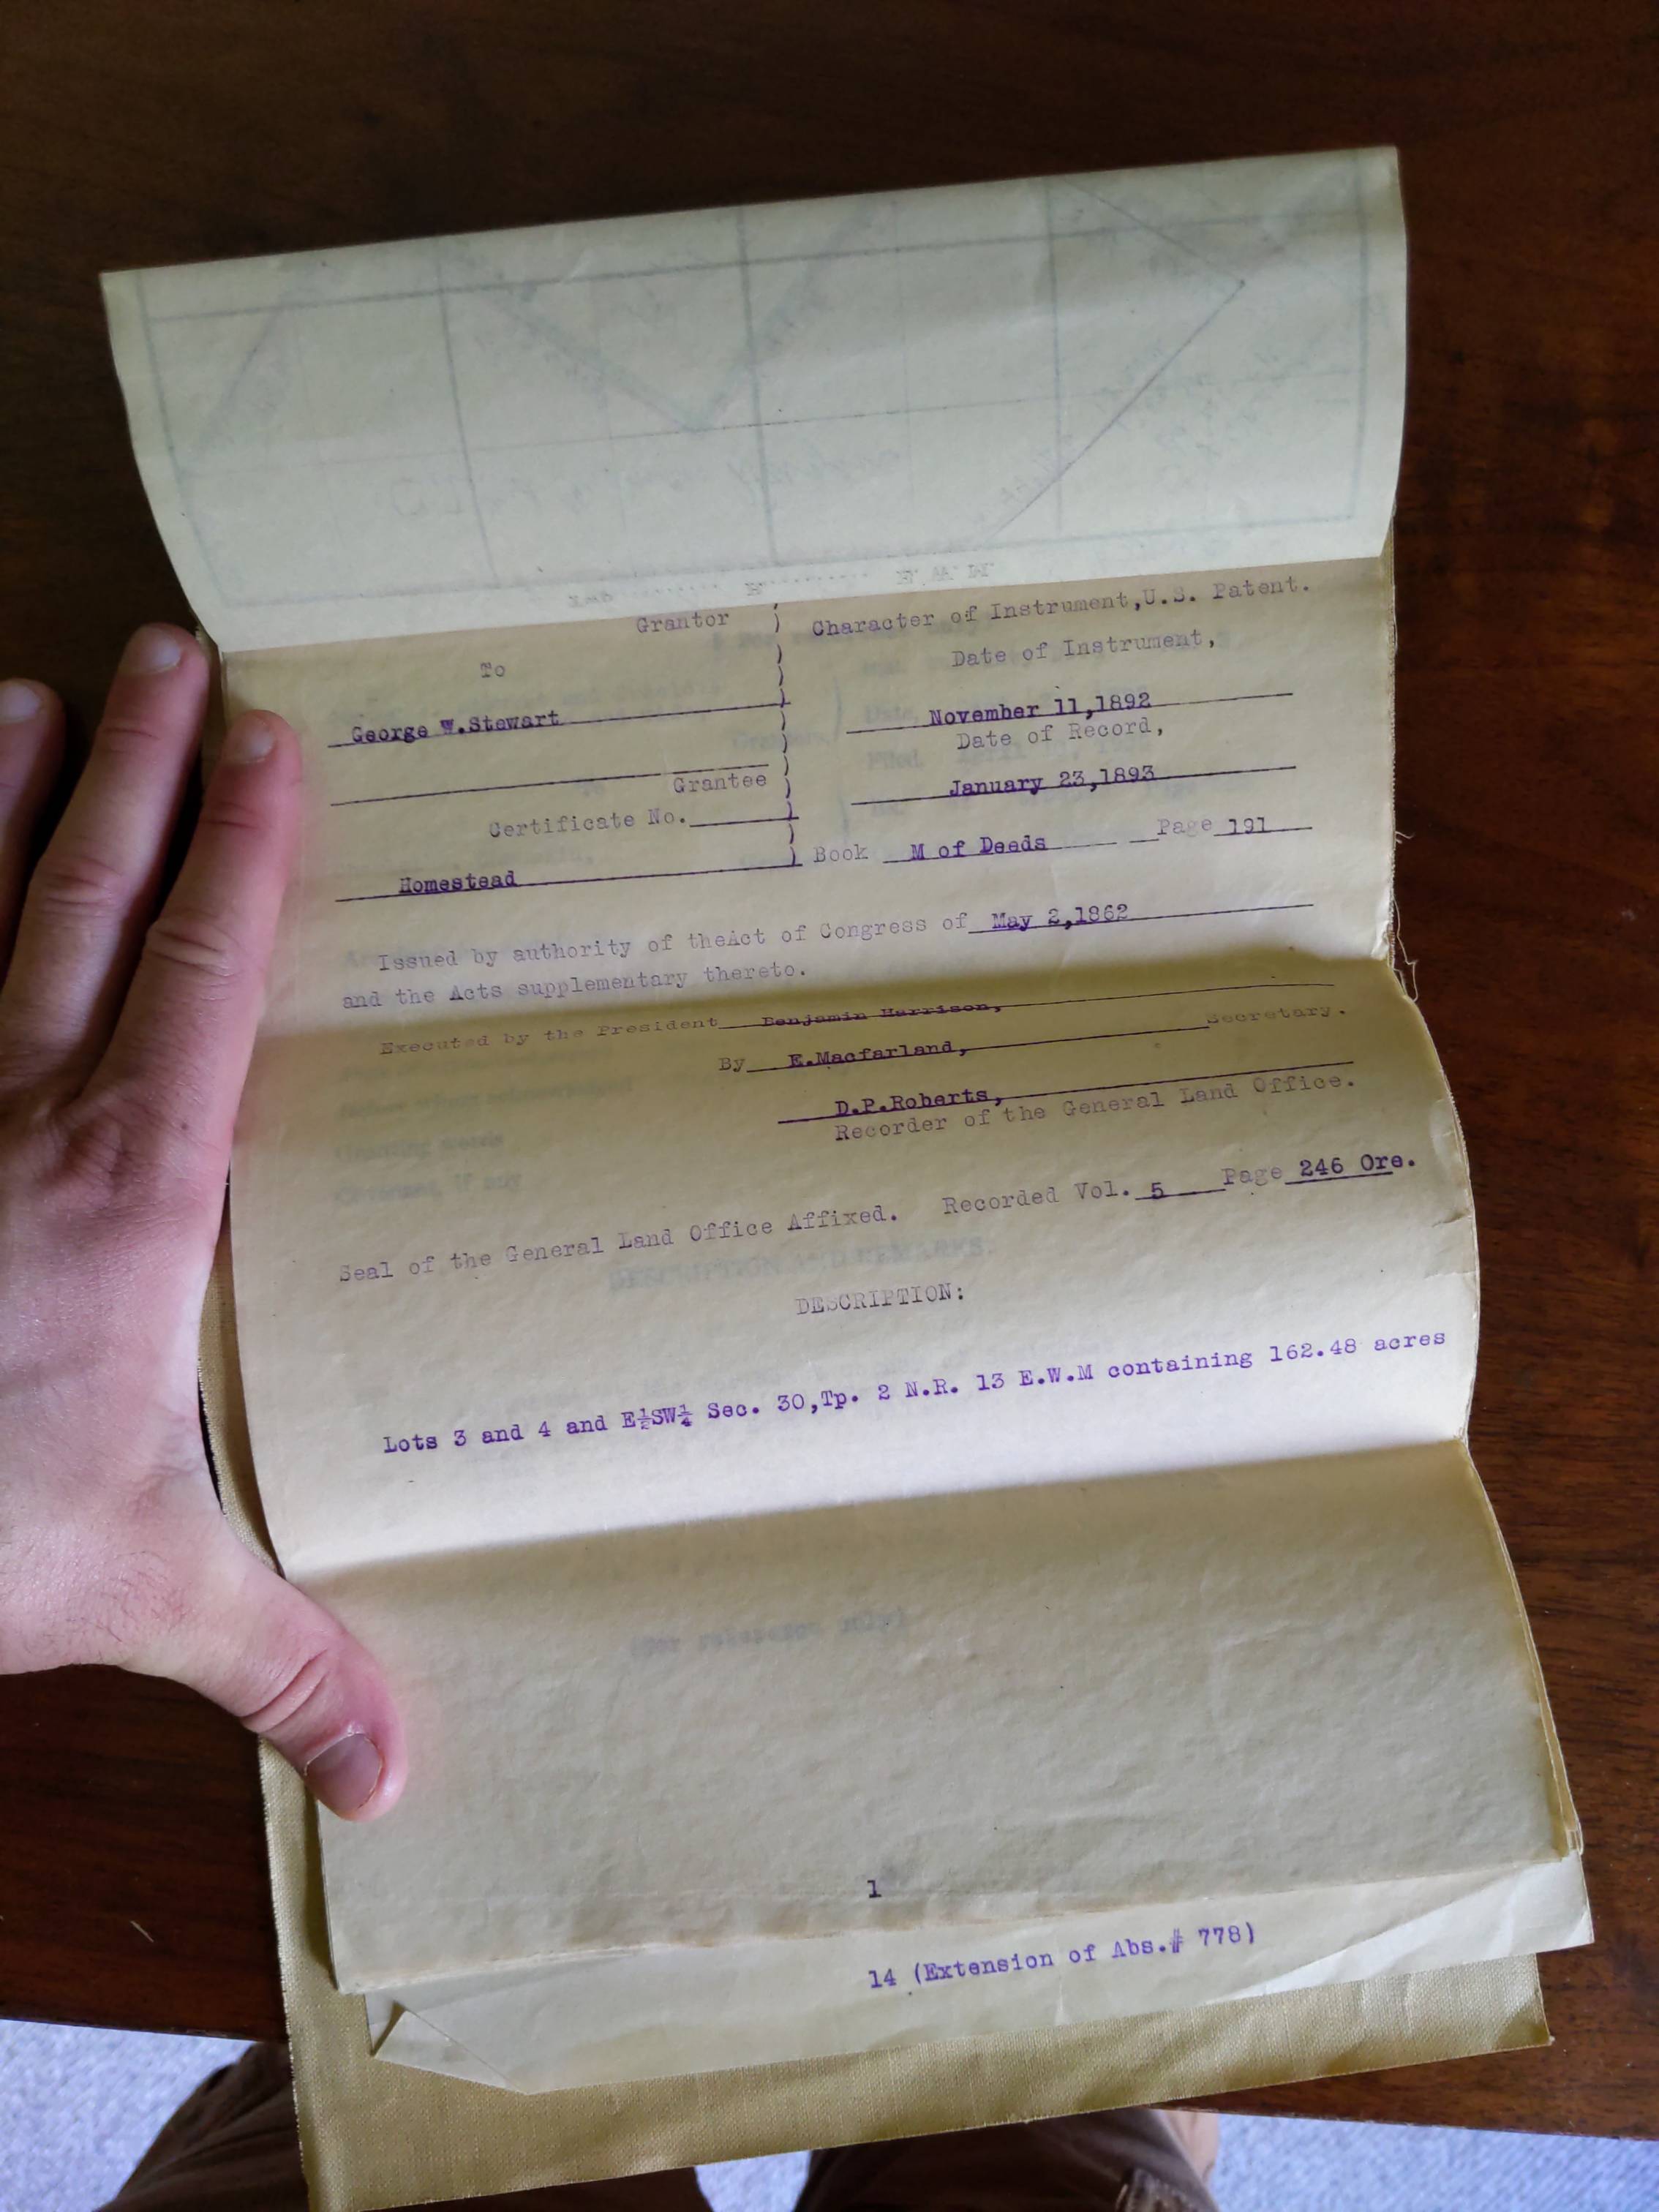 Grantor
Character of Instrument,U.S. Patent.
To
Date of Instrument,
George W.Stewart
November 11,1892
Date of Record,
Grantee
January 23,1893
Certificate No.
Book M of Deeds Page 191
Homestead
Issued by authority of theAct of Congress of May 2,1862
and the Acts supplementary thereto.
Executed by the President Benjamin Harrison,
By E.Macfarland, Secretary.
D.P.Roberts,
Recorder of the General Land Office.
Seal of the General Land Office Affixed. Recorded Vol. 5 Page 246 Ore.
DESCRIPTION:
Lots 3 and 4 and E½SW¼ Sec. 30,Tp. 2 N.R. 13 E.W.M containing 162.48 acres
1
14 (Extension of Abs.# 778)